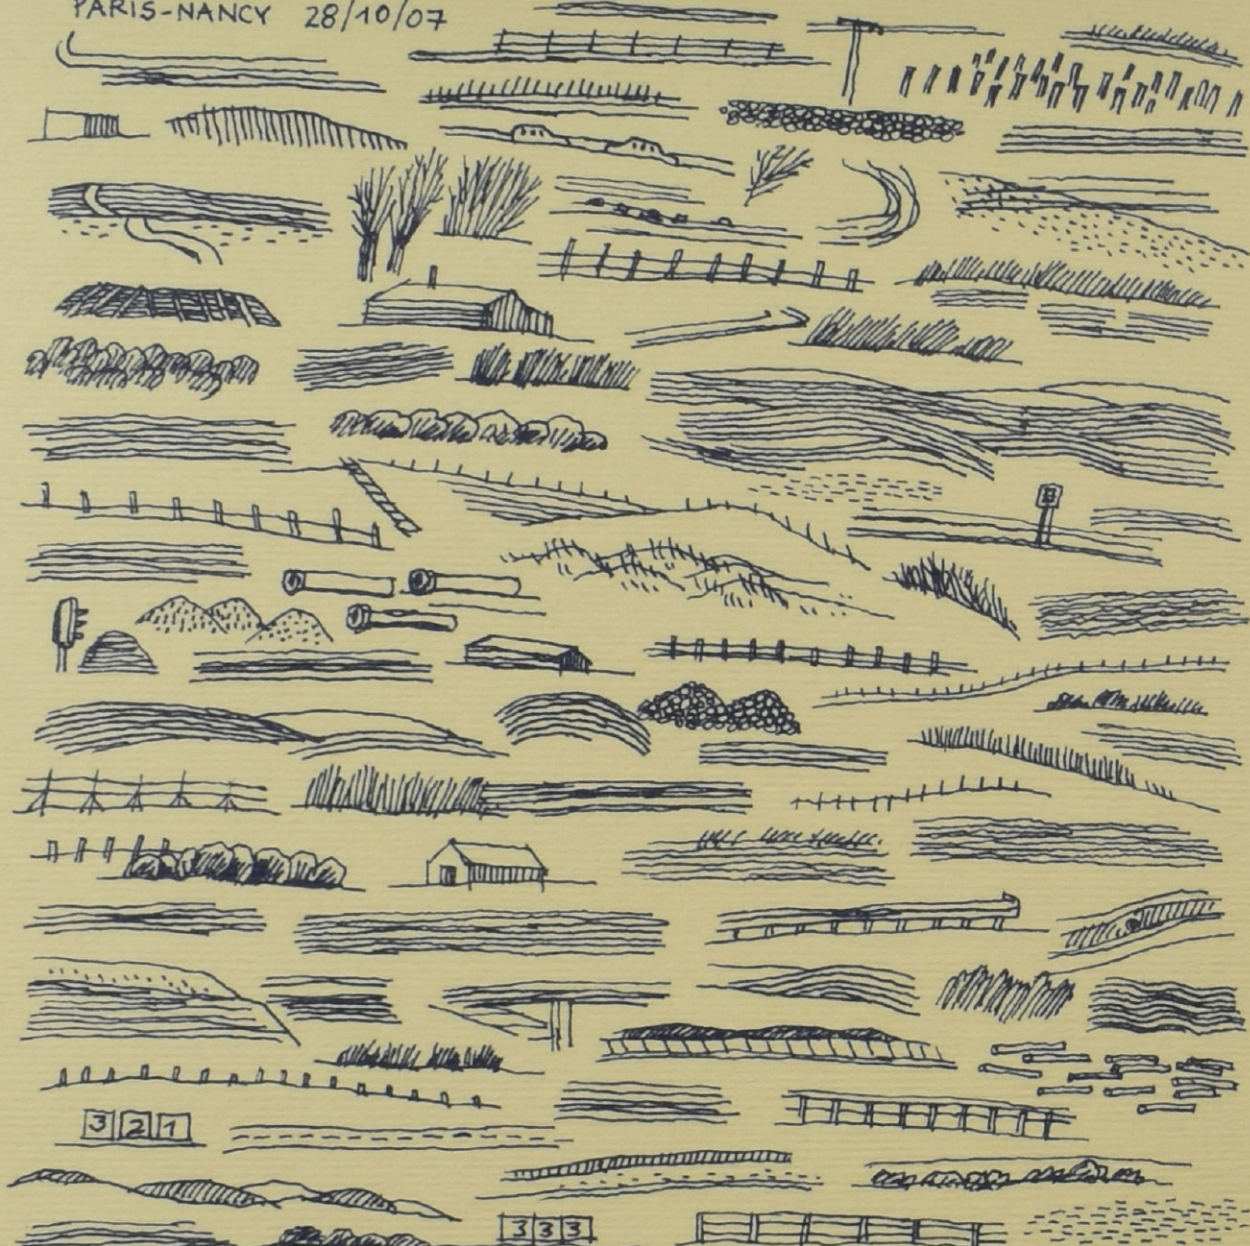 PARIS-NANCY 28/10/07
3 2 1
3 3 3